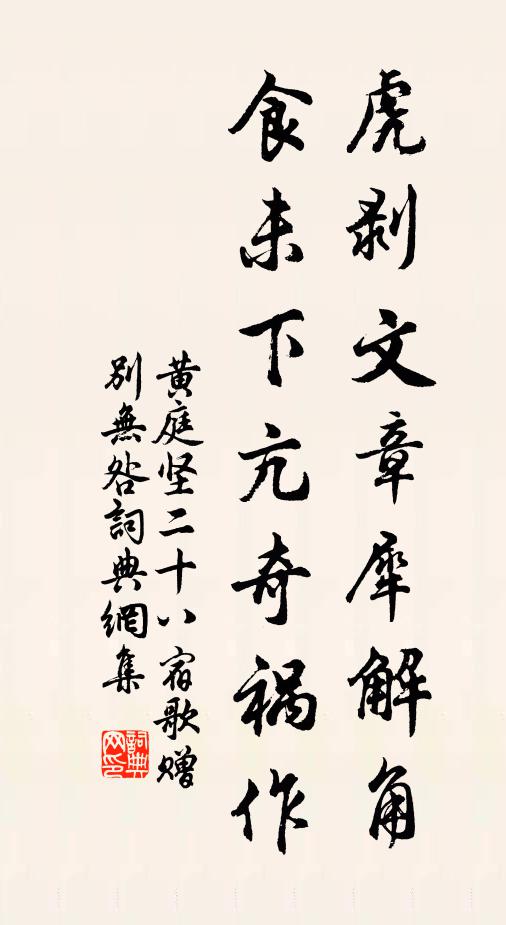 虎剥文章犀解角
食未下亢奇祸作
黄庭坚二十八宿歌赠
别無咎詞典網集
詞典
网印